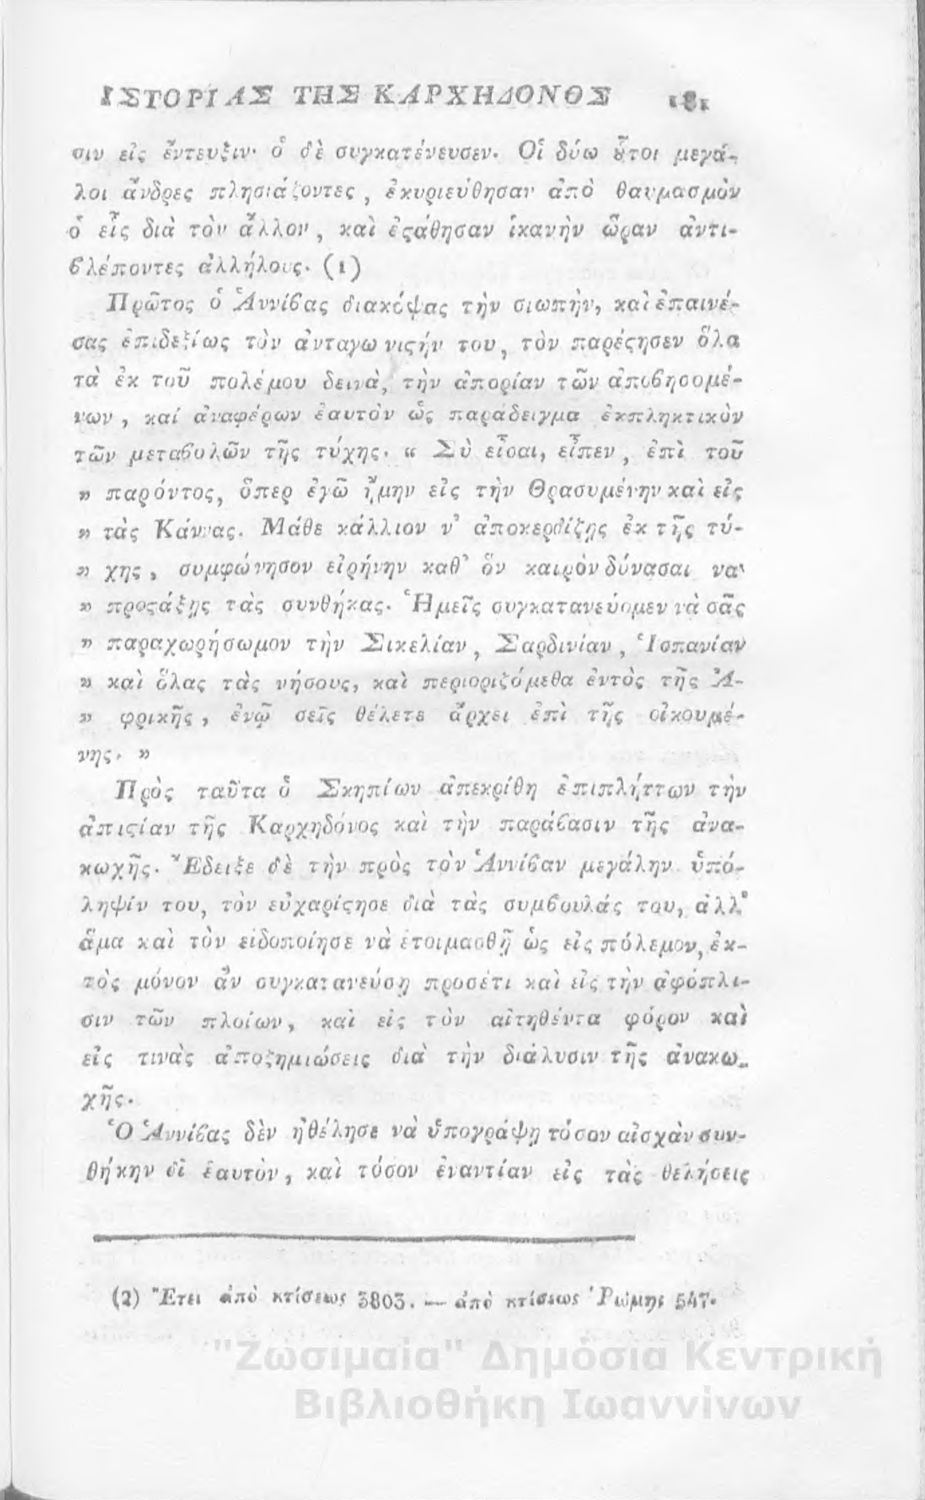 ΙΣΤΟΡΙΑΣ ΤΗΣ ΚΑΡΧΗΔΟΝΟΣ 181
σιν εἰς ἔντευξιν· ὁ δὲ συγκατένευσεν. Οἱ δύω ὗτοι μεγά-
λοι ἄνδρες πλησιάζοντες , ἐκυριεύθησαν ἀπὸ θαυμασμὸν
ὁ εἷς διὰ τὸν ἄλλον , καὶ ἐςάθησαν ἱκανὴν ὥραν ἀντι-
βλέποντες ἀλλήλους. (1)
Πρῶτος ὁ Ἀννίβας διακόψας τὴν σιωπὴν, καὶ ἐπαινέ-
σας ἐπιδεξίως τὸν ἀνταγωνιςήν του, τὸν παρέςησεν ὅλα
τὰ ἐκ τοῦ πολέμου δεινὰ, τὴν ἀπορίαν τῶν ἀποβησομέ-
νων , καί ἀναφέρων ἑαυτὸν ὡς παράδειγμα ἐκπληκτικὸν
τῶν μεταβολῶν τῆς τύχης. « Σὺ εἶσαι, εἶπεν , ἐπὶ τοῦ
» παρόντος, ὅπερ ἐγῶ ἤμην εἰς τὴν Θρασυμένην καὶ εἰς
» τὰς Κάννας. Μάθε κάλλιον ν' ἀποκερδίζῃς ἐκ τῆς τύ-
» χης , συμφώνησον εἰρήνην καθ' ὃν καιρὸν δύνασαι να
» προςάξῃς τὰς συνθήκας. Ἡμεῖς συγκατανεύομεν νὰ σᾶς
» παραχωρήσωμον τὴν Σικελίαν , Σαρδινίαν , Ἱσπανίαν
» καὶ ὅλας τὰς νήσους, καὶ περιοριζόμεθα ἐντὸς τῆς Ἀ-
» φρικῆς , ἐνῷ σεῖς θέλετε ἄρχει ἐπὶ τῆς οἰκουμέ-
νης. »
Πρὸς ταῦτα ὁ Σκηπίων ἀπεκρίθη ἐπιπλήττων τὴν
ἀπιςίαν τῆς Καρχηδόνος καὶ τὴν παράβασιν τῆς ἀνα-
κωχῆς. Ἔδειξε δὲ τὴν πρὸς τὸν Ἀννίβαν μεγάλην ὑπό-
ληψίν του, τὸν εὐχαρίςησε διὰ τὰς συμβουλάς του, ἀλλ'
ἅμα καὶ τὸν εἰδοποίησε νὰ ἑτοιμασθῇ ὡς εἰς πόλεμον, ἐκ-
τὸς μόνον ἂν συγκατανεύσῃ προσέτι καὶ εἰς τὴν ἀφόπλι-
σιν τῶν πλοίων, καὶ εἰς τὸν αἰτηθέντα φόρον καὶ
εἰς τινὰς ἀποζημιώσεις διὰ τὴν διάλυσιν τῆς ἀνακω-
χῆς.
Ὁ Ἀννίβας δὲν ἠθέλησε νὰ ὑπογράψῃ τόσον αἰσχὰν συν-
θήκην δί ἑαυτὸν, καὶ τόσον ἐναντίαν εἰς τὰς θελήσεις
(2) Ἔτει ἀπὸ κτίσεως 3803. — ἀπὸ κτίσεως Ῥώμης 547.
"Ζωσιμαία" Δημόσια Κεντρική
Βιβλιοθήκη Ιωαννίνων